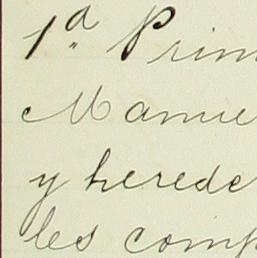 1ª Prim
Manue
y herede
les comp